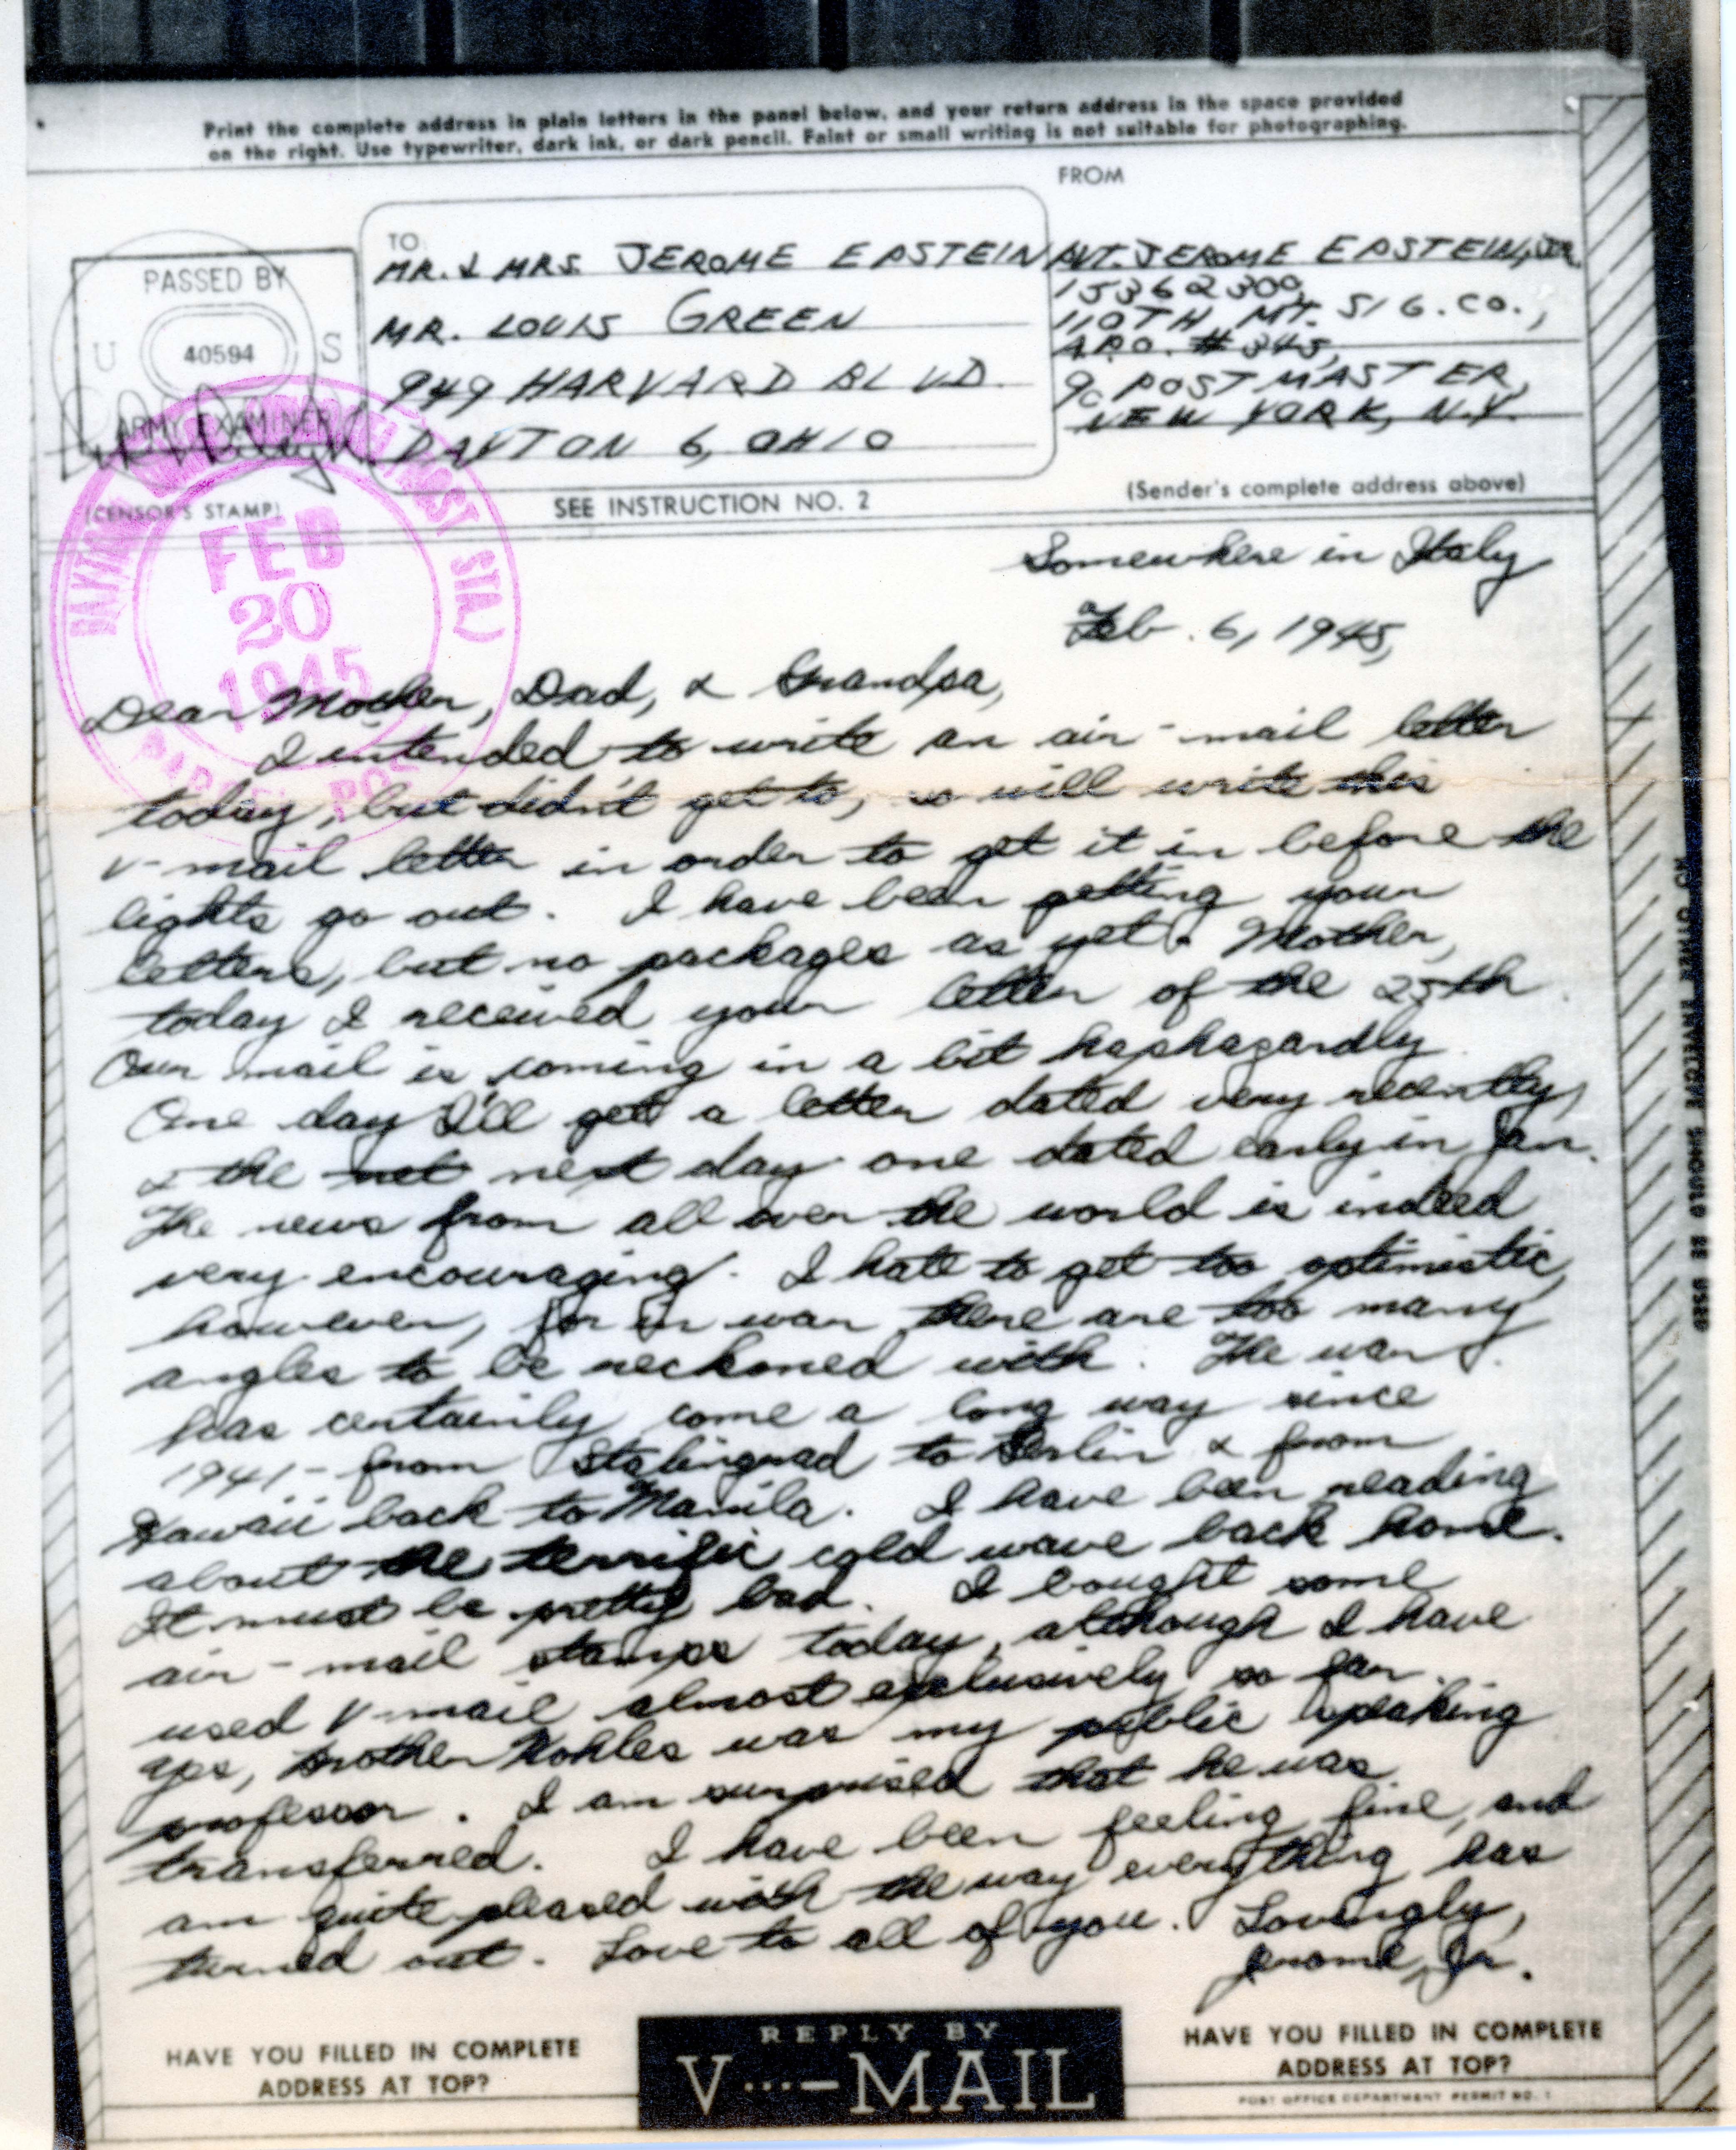 Print the complete address in plain letters in the panel below, and your return address in the space provided
on the right. Use typewriter, dark ink, or dark pencil. Faint or small writing is not suitable for photographing.
FROM
TO
MR. & MRS. JEROME EPSTEIN
MR. LOUIS GREEN
949 HARVARD BLVD.
DAYTON 6, OHIO
PVT. JEROME EPSTEIN, JR.
15362300
110TH MT. SIG. CO.,
A.P.O. #345,
℅ POSTMASTER,
NEW YORK, N.Y.
PASSED BY
U S
40594
ARMY EXAMINER
(CENSOR'S STAMP)
SEE INSTRUCTION NO. 2
(Sender's complete address above)
FEB
20
1945
PARCEL POST
Somewhere in Italy
Feb. 6, 1945,
Dear Mother, Dad, & Grandpa,
I intended to write an air-mail letter
today, but didn't get to, so will write this
V-mail letter in order to get it in before the
lights go out. I have been getting your
letters, but no packages as yet. Mother,
today I received your letter of the 25th.
Our mail is coming in a bit haphazardly.
One day I'll get a letter dated very recently,
& the next day one dated early in Jan.
The news from all over the world is indeed
very encouraging. I hate to get too optimistic,
however, for in war there are too many
angles to be reckoned with. The war
has certainly come a long way since
1941 - from Stalingrad to Berlin & from
Hawaii back to Manila. I have been reading
about the terrific cold wave back home.
It must be pretty bad. I bought some
air-mail stamps today, although I have
used V-mail almost exclusively so far.
Yes, Brother Kohles was my public speaking
professor. I am surprised that he was
transferred. I have been feeling fine, and
am quite pleased with the way everything has
turned out. Love to all of you. Lovingly,
Jerome, Jr.
HAVE YOU FILLED IN COMPLETE
ADDRESS AT TOP?
REPLY BY
V···—MAIL
HAVE YOU FILLED IN COMPLETE
ADDRESS AT TOP?
POST OFFICE DEPARTMENT PERMIT NO. 1
NO OTHER ENVELOPE SHOULD BE USED